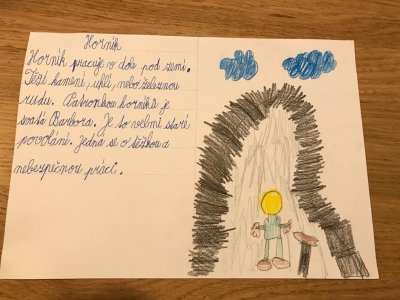 Horník
Horník pracuje v dole pod zemí.
Těží kamení, uhlí, nebo železnou
rudu. Patronkou horníků je
svatá Barbora. Je to velmi staré
povolání. Jedná se o těžkou a
nebezpečnou práci.